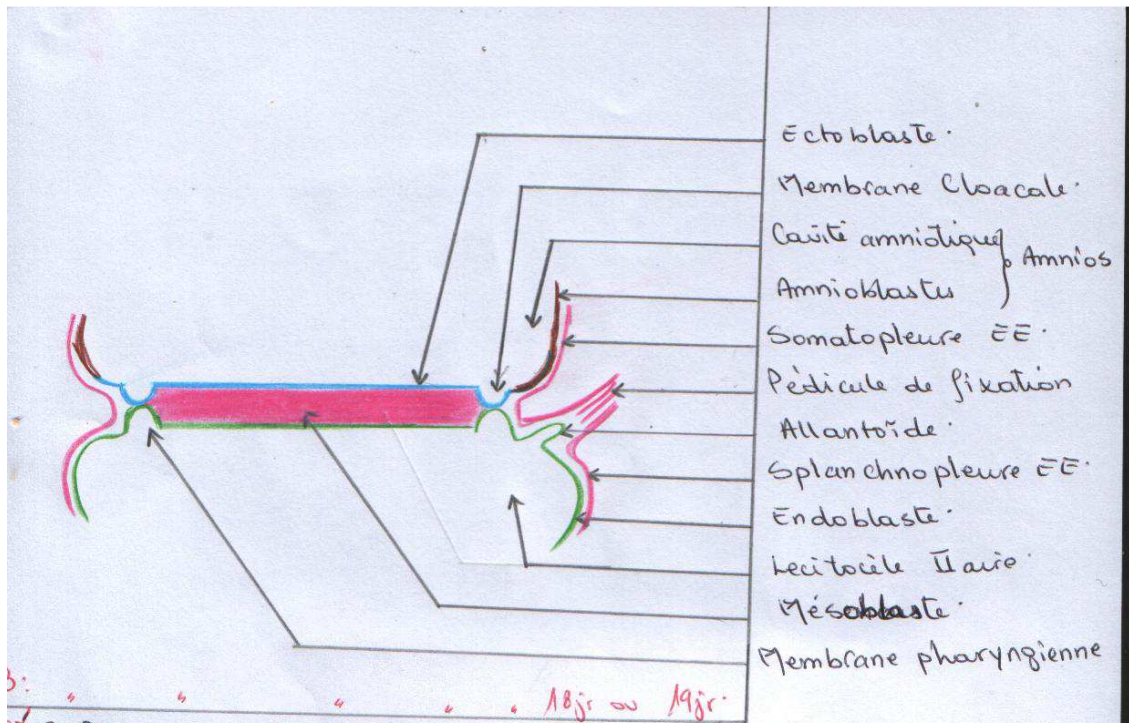 Ectoblaste.
Membrane Cloacale.
Cavité amniotique } Amnios
Amnioblastes
Somatopleure EE.
Pédicule de fixation
Allantoïde.
Splanchnopleure EE.
Endoblaste.
Lecitocèle II aire
Mésoblaste.
Membrane pharyngienne
3: " " " " " 18jr ou 19jr.